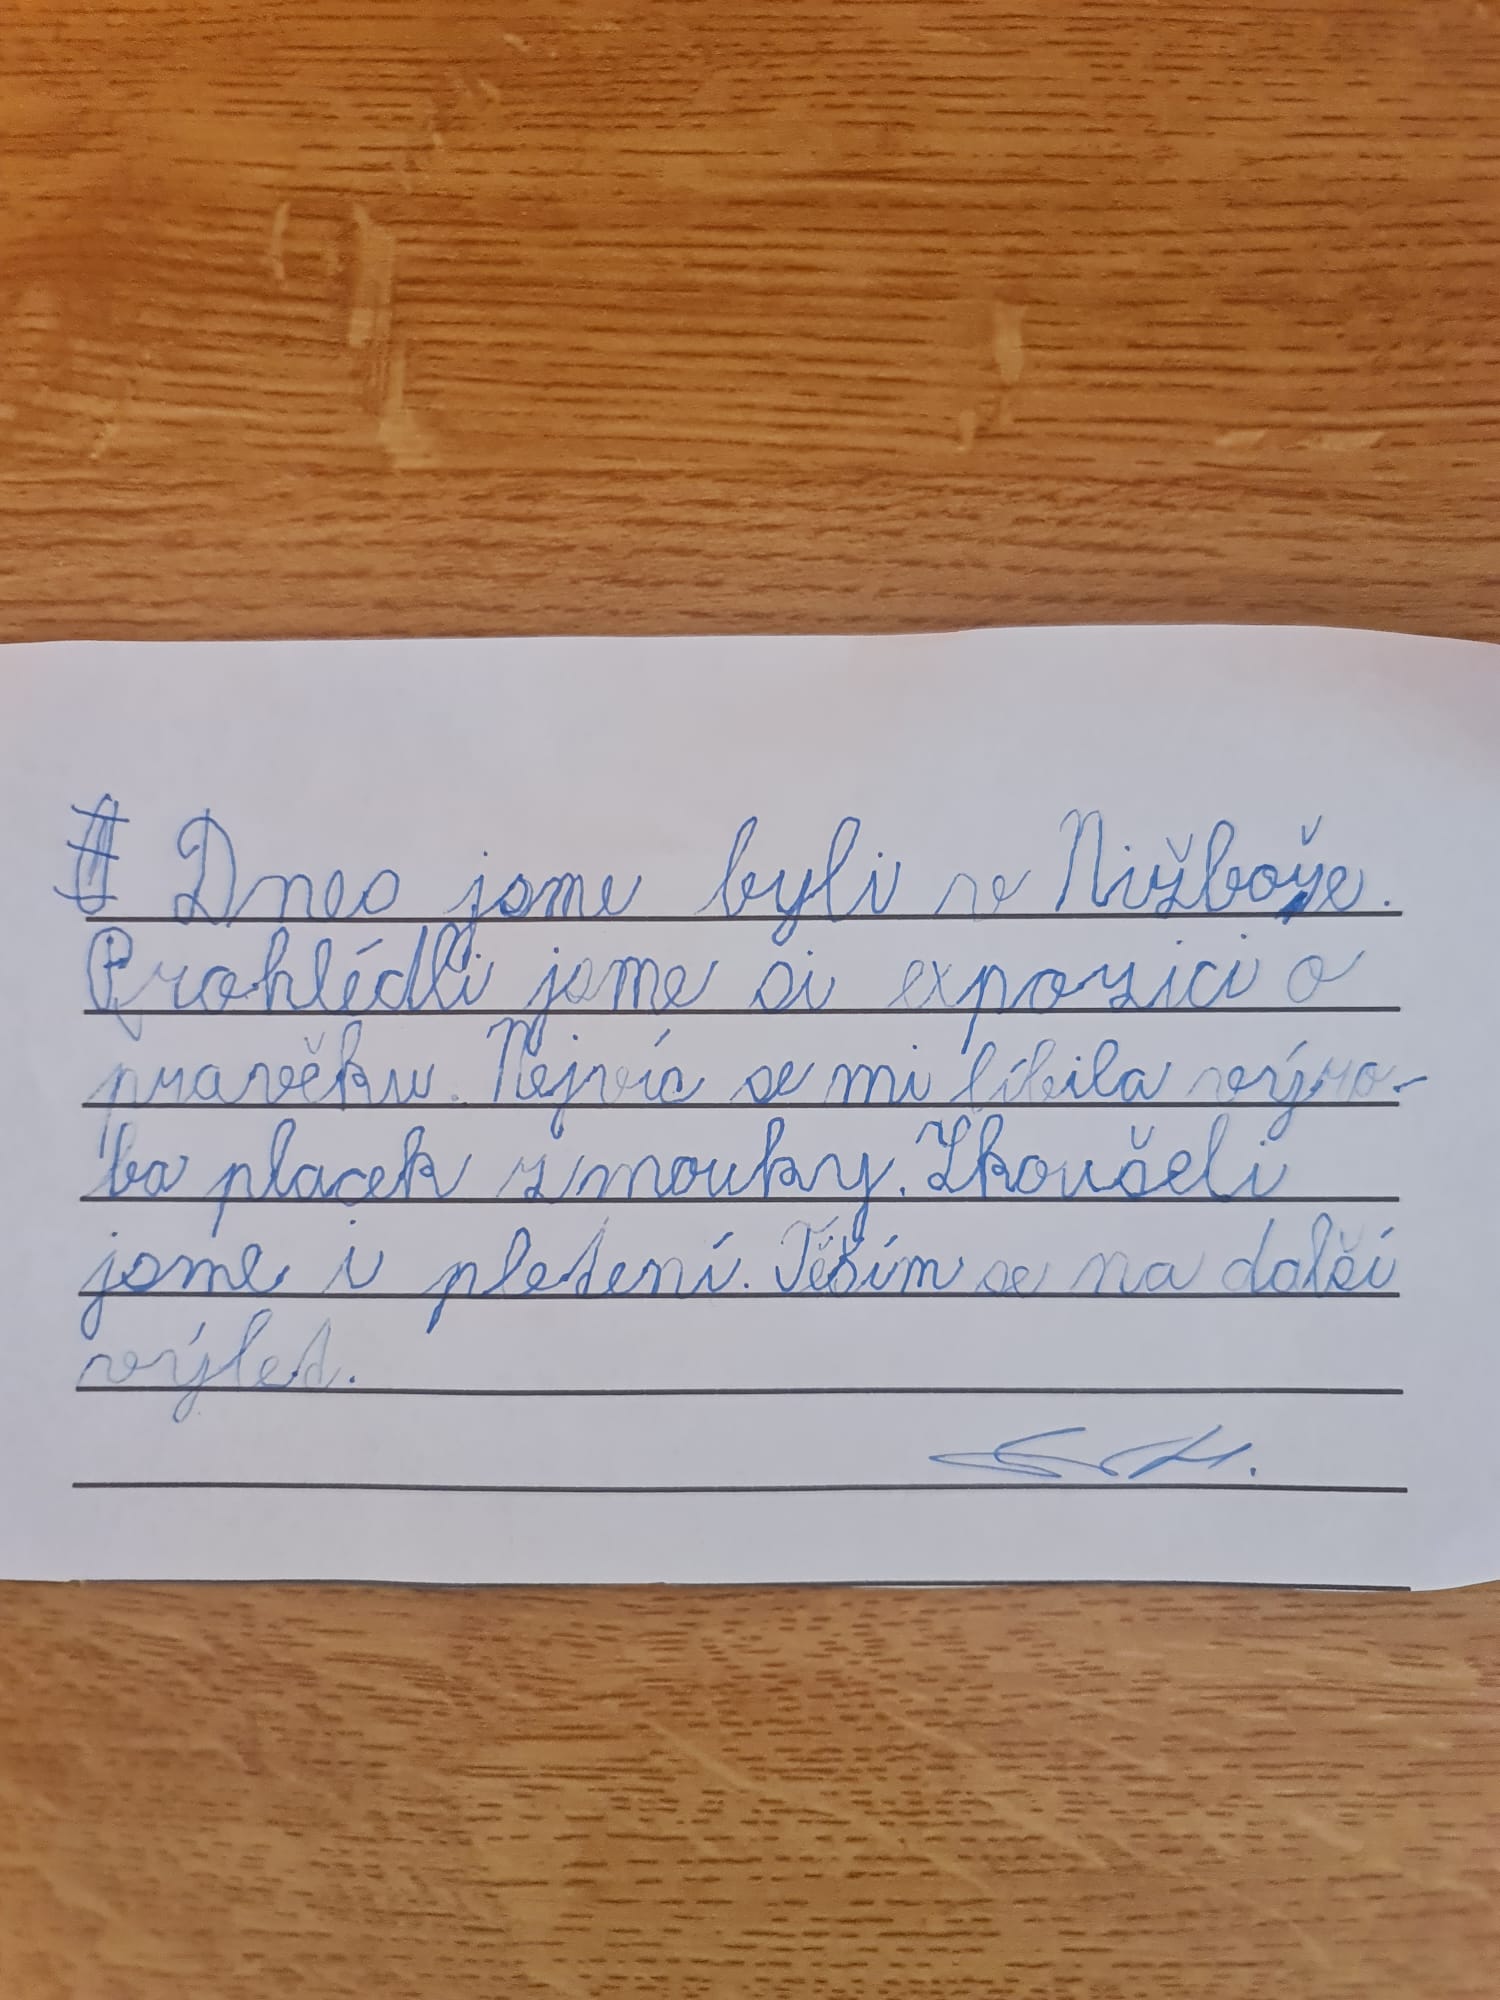 Dnes jsme byli ve Nižboře.
Prohlédli jsme si expozici o
pravěku. Nejvíc se mi líbila výro-
ba placek z mouky. Zkoušeli
jsme i pletení. Těším se na další
výlet.